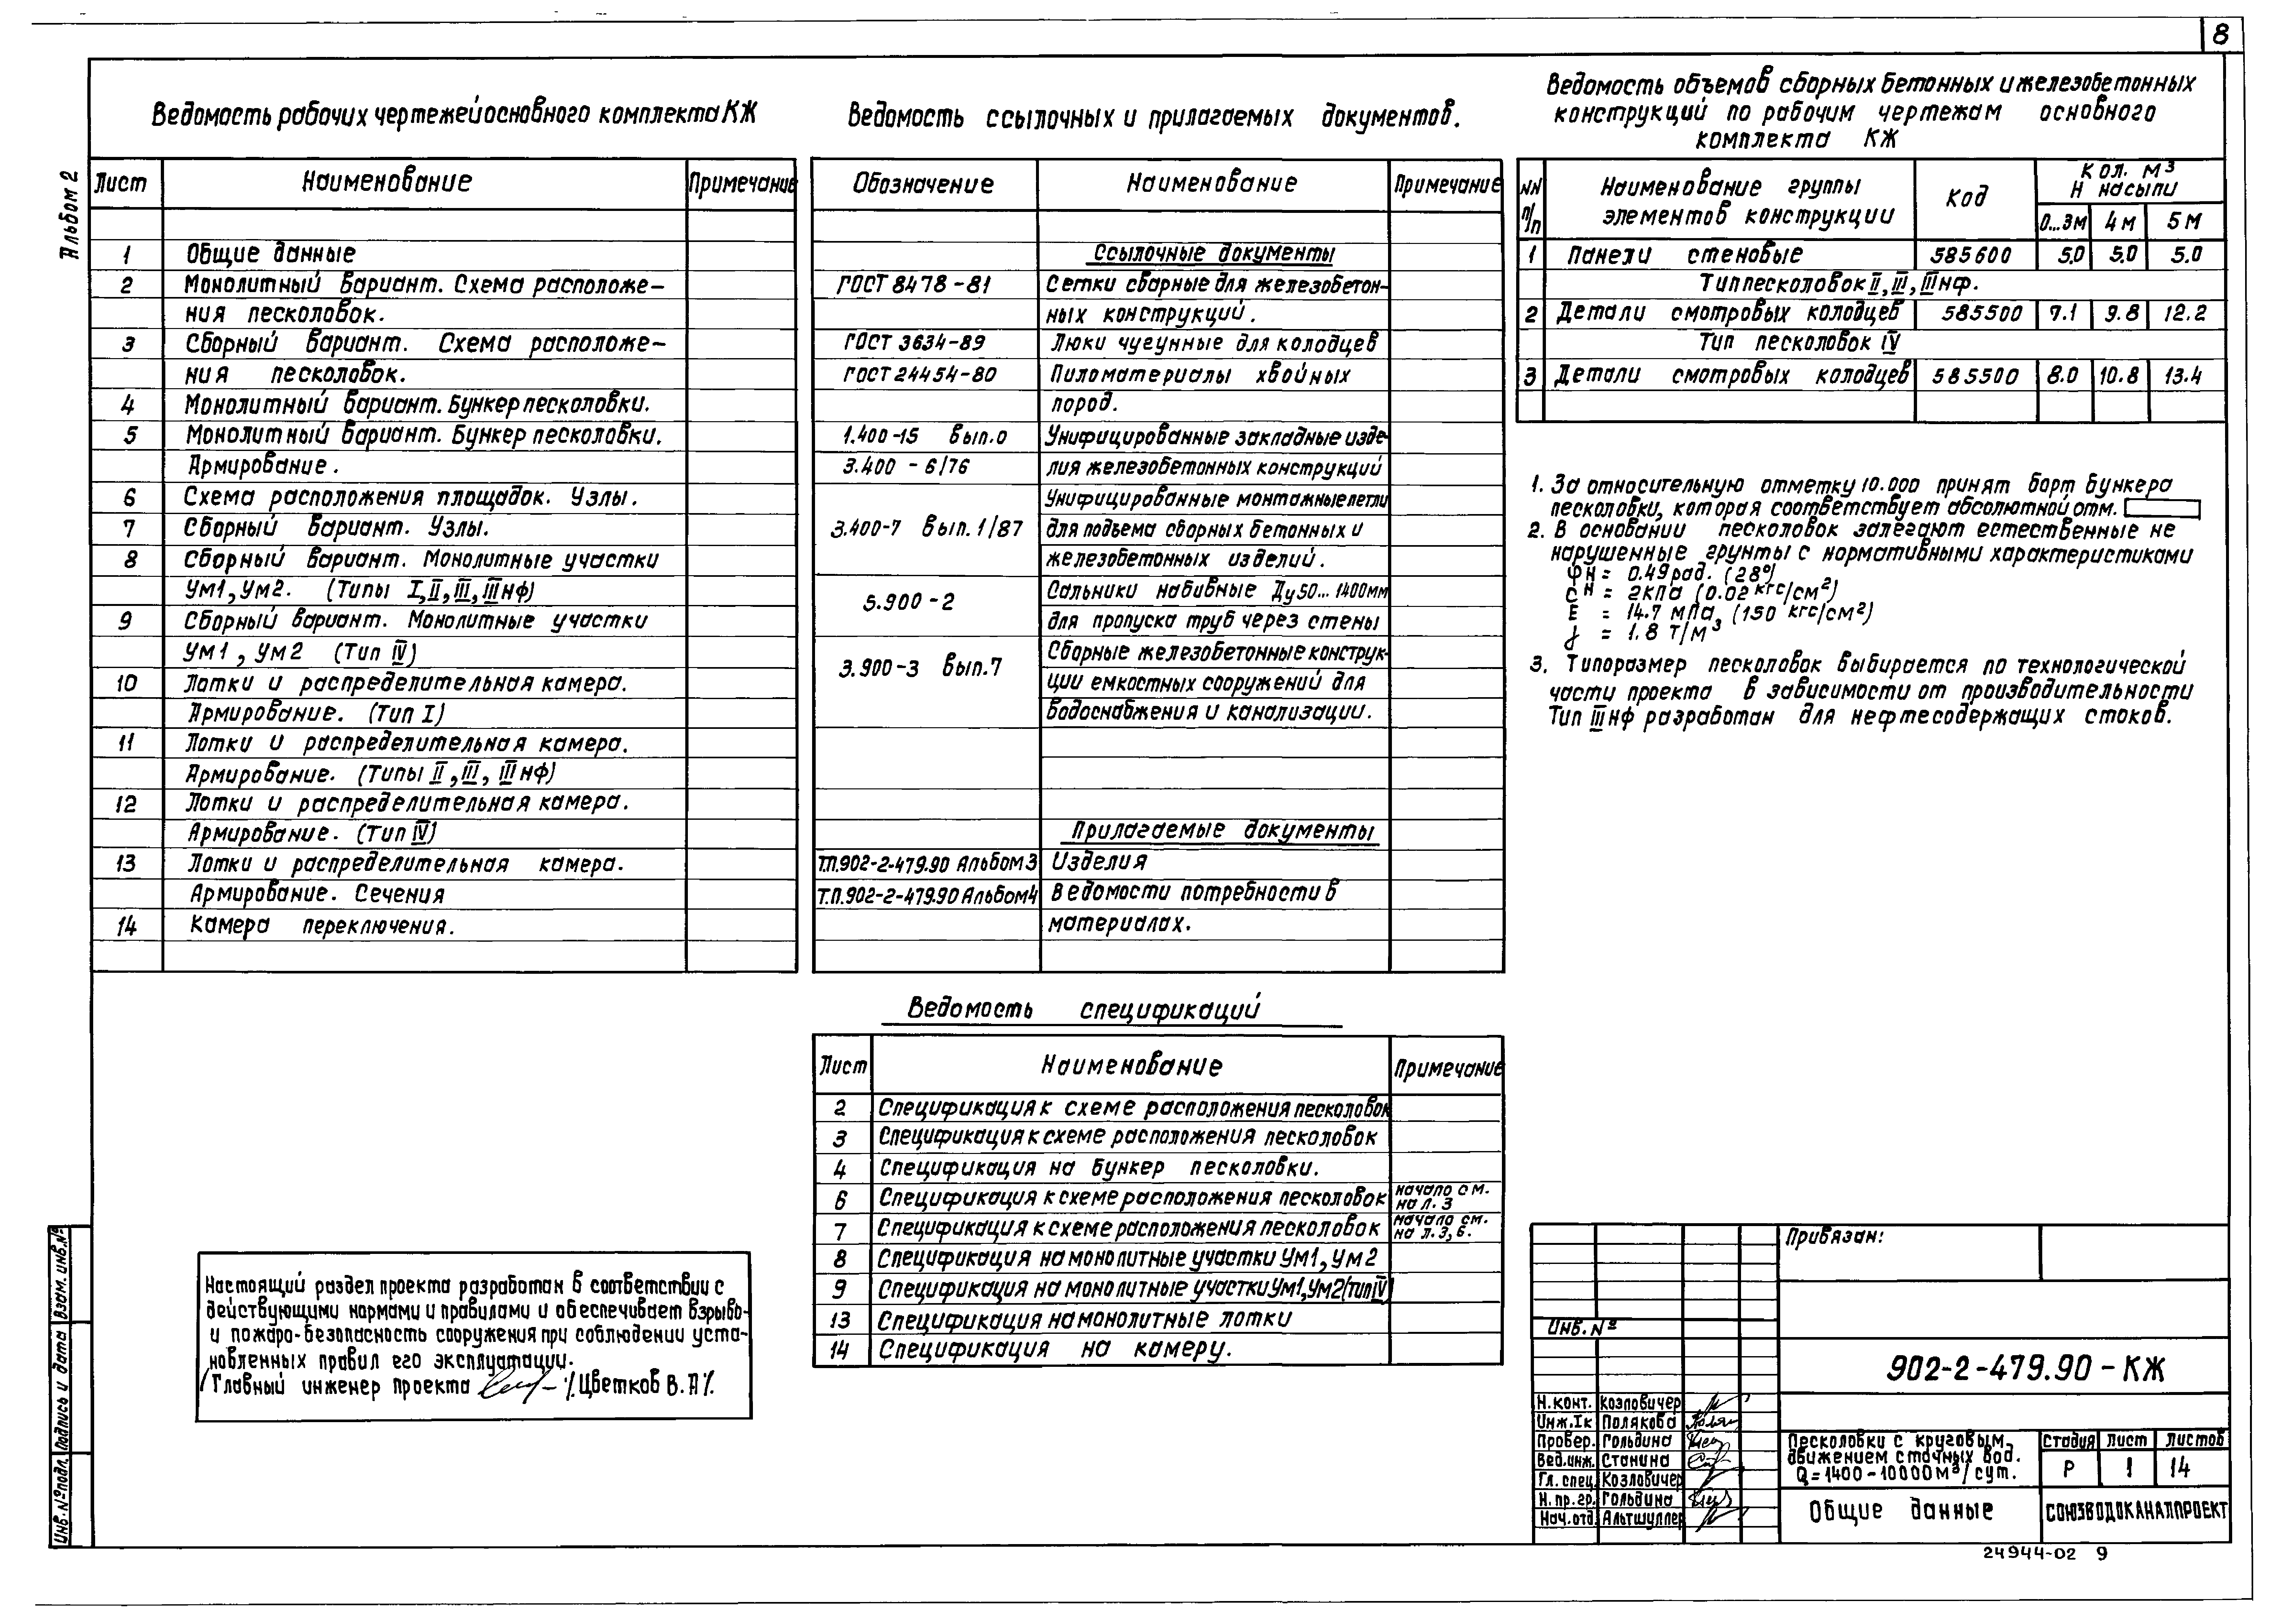 8
Альбом 2
Ведомость рабочих чертежей основного комплекта КЖ
Лист Наименование Примечание
1 Общие данные
2 Монолитный вариант. Схема расположе-
ния песколовок.
3 Сборный вариант. Схема расположе-
ния песколовок.
4 Монолитный вариант. Бункер песколовки.
5 Монолитный вариант. Бункер песколовки.
Армирование.
6 Схема расположения площадок. Узлы.
7 Сборный вариант. Узлы.
8 Сборный вариант. Монолитные участки
Ум1, Ум2. (Типы I, II, III, IIIнф)
9 Сборный вариант. Монолитные участки
Ум1, Ум2 (Тип IV)
10 Лотки и распределительная камера.
Армирование. (Тип I)
11 Лотки и распределительная камера.
Армирование. (Типы II, III, IIIнф)
12 Лотки и распределительная камера.
Армирование. (Тип IV)
13 Лотки и распределительная камера.
Армирование. Сечения
14 Камера переключения.
Ведомость ссылочных и прилагаемых документов.
Обозначение Наименование Примечание
Ссылочные документы
ГОСТ 8478-81 Сетки сварные для железобетон-
ных конструкций.
ГОСТ 3634-89 Люки чугунные для колодцев
ГОСТ 24454-80 Пиломатериалы хвойных
пород.
1.400-15 вып.0 Унифицированные закладные изде-
3.400-6/76 лия железобетонных конструкций
Унифицированные монтажные петли
3.400-7 вып. 1/87 для подъема сборных бетонных и
железобетонных изделий.
5.900-2 Сальники набивные Ду50...1400мм
для пропуска труб через стены
3.900-3 вып.7 Сборные железобетонные конструк-
ции емкостных сооружений для
водоснабжения и канализации.
Прилагаемые документы
Т.П.902-2-479.90 Альбом3 Изделия
Т.П.902-2-479.90 Альбом4 Ведомости потребности в
материалах.
Ведомость спецификаций
Лист Наименование Примечание
2 Спецификация к схеме расположения песколовок
3 Спецификация к схеме расположения песколовок
4 Спецификация на бункер песколовки.
6 Спецификация к схеме расположения песколовок начало см. на л. 3
7 Спецификация к схеме расположения песколовок начало см. на л. 3, 6.
8 Спецификация на монолитные участки Ум1, Ум2
9 Спецификация на монолитные участки Ум1, Ум2 (тип IV)
13 Спецификация на монолитные лотки
14 Спецификация на камеру.
Ведомость объемов сборных бетонных и железобетонных
конструкций по рабочим чертежам основного
комплекта КЖ
NN п/п Наименование группы элементов конструкции Код Кол. м³ Н насыпи
0...3м 4м 5м
1 Панели стеновые 585600 5.0 5.0 5.0
Тип песколовок II, III, IIIнф.
2 Детали смотровых колодцев 585500 7.1 9.8 12.2
Тип песколовок IV
3 Детали смотровых колодцев 585500 8.0 10.8 13.4
1. За относительную отметку 10.000 принят борт бункера
песколовки, которая соответствует абсолютной отм.
2. В основании песколовок залегают естественные не
нарушенные грунты с нормативными характеристиками
φн = 0.49рад. (28°)
Сн = 2кПа (0.02 кгс/см²)
Е = 14.7 мПа, (150 кгс/см²)
γ = 1.8 т/м³
3. Типоразмер песколовок выбирается по технологической
части проекта в зависимости от производительности
Тип IIIнф разработан для нефтесодержащих стоков.
Настоящий раздел проекта разработан в соответствии с
действующими нормами и правилами и обеспечивает взрыво-
и пожаро-безопасность сооружения при соблюдении уста-
новленных правил его эксплуатации.
Главный инженер проекта /Цветков В.П/.
Инв.№подл. Подпись и дата Взам. инв.№
Привязан:
Инв.№
902-2-479.90-КЖ
Н.конт. Козловичер
Инж.Iк Полякова
Провер. Гольдина
Вед.инж. Станина
Гл. спец. Козловичер
Н.пр.гр. Гольдина
Нач.отд. Альтшуллер
Песколовки с круговым
движением сточных вод.
Q=1400-10000м³/сут.
Стадия Лист Листов
Р 1 14
Общие данные
СОЮЗВОДОКАНАЛПРОЕКТ
24944-02 9